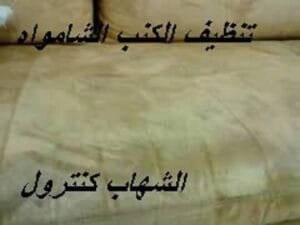 تنظيف الكنب الشامواه
الشهاب كنترول